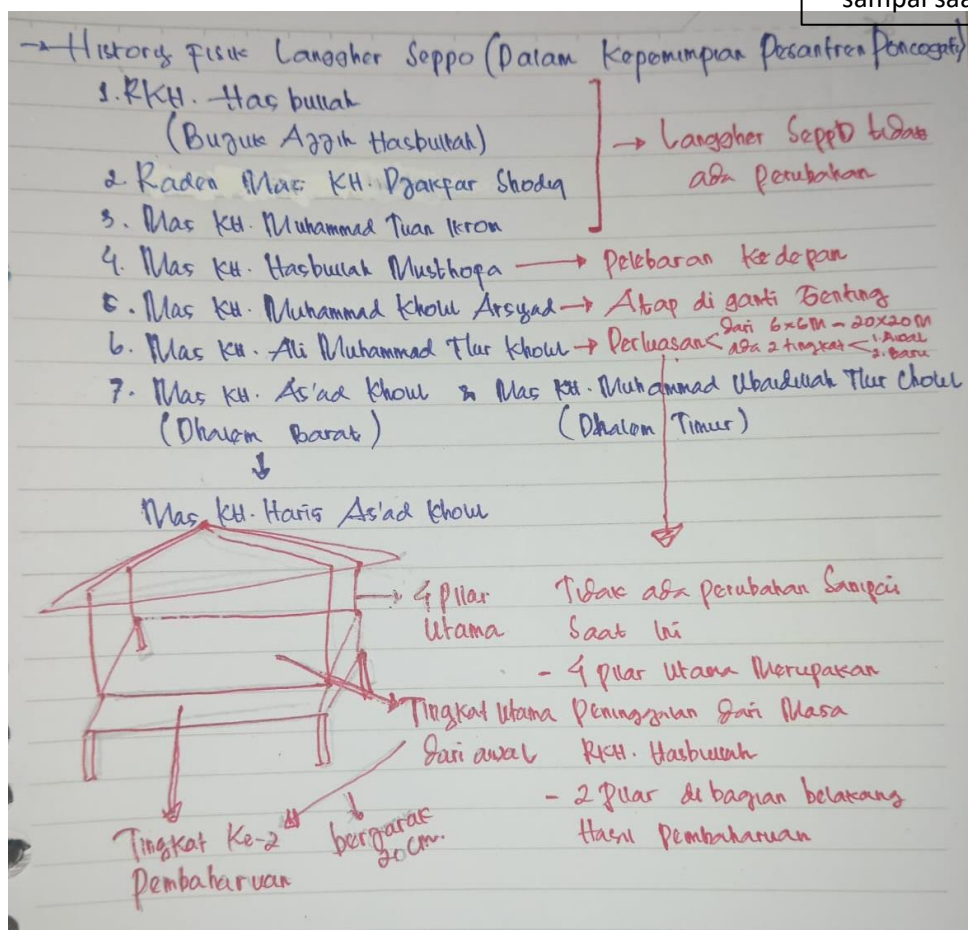 sampai saa
→ History Fisik Langgher Seppo (Dalam Kepemimpian Pesantren Poncogati)
1. RKH. Hasbullah
(Bujuk Aggih Hasbullah)
2. Raden Mas KH. Djakfar Shodiq
3. Mas KH. Muhammad Tuan Ikrom
→ Langgher Seppo tidak
ada perubahan
4. Mas KH. Hasbullah Musthofa → Pelebaran Kedepan
5. Mas KH. Muhammad Kholil Arsyad → Atap di ganti Genting
6. Mas KH. Ali Muhammad Ilur Kholil → Perluasan < dari 6x6M - 20x20M
ada 2 tingkat < 1. Awal
2. Baru
7. Mas KH. As'ad Kholil & Mas KH. Muhammad Ubaidillah Ilur Cholil
(Dhalem Barat) (Dhalem Timur)
↓
Mas KH. Haris As'ad Kholil
→ 4 Pilar
Utama
Tidak ada perubahan Sampai
Saat ini
- 4 Pilar Utama Merupakan
Peninggalan dari Masa
RKH. Hasbullah
- 2 Pilar di bagian belakang
Hasil Pembaharuan
Tingkat Utama
dari awal
Tingkat Ke-2
Pembaharuan
bergarak
20 cm.